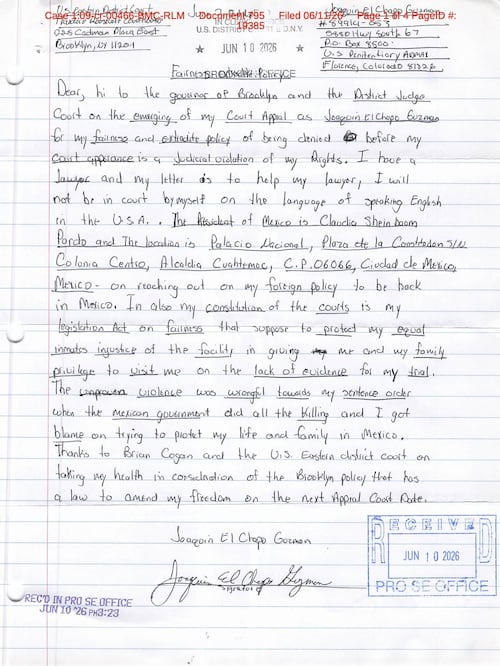 Case 1:09-cr-00466-BMC-RLM Document 795 Filed 06/11/26 Page 1 of 4 PageID #: 19385
U.S. Eastern District Court
Theodore Roosevelt Courthouse
225 Cadman Plaza East
Brooklyn, NY 11201
U.S. DISTRICT COURT E.D.N.Y.
★ JUN 10 2026 ★
BROOKLYN OFFICE
Joaquin El Chapo Guzman
# 89914-053
5880 Hwy South 67
P.O Box 8500
U.S Penitentiary ADMAX
Florence, Colorado 81226
Fairness Policy
Dear, hi to the governor of Brooklyn and the District Judge
Court on the emerging of my Court Appeal as Joaquin El Chapo Guzman
for my fairness and extradite policy of being denied before my
court apperance is a Judicial violation of my Rights. I have a
lawyer and my letter is to help my lawyer, I will
not be in court by myself on the language of speaking English
in the U.S.A. . The President of Mexico is Claudia Sheinbaum
Pardo and The location is Palacio Nacional, Plaza de la Constitution S/N
Colonia Centro, Alcaldia Cuahtemoc, C.P. 06066, Ciudad de Mexico,
Mexico - on reaching out on my foreign policy to be back
in Mexico. In also my constitution of the courts is my
legislation Act on fairness that suppose to protect my equal
inmates injustice of the facility in giving me and my family
privilege to visit me on the lack of evidence for my trial.
The unproven violence was wrongful towards my sentence order
when the mexican government did all the killing and I got
blame on trying to protet my life and family in Mexico.
Thanks to Brian Cogan and the U.S. Eastern district court on
taking my health in consideration of the Brooklyn policy that has
a law to amend my freedom on the next Appeal Court Date.
Joaquin El Chapo Guzman
Joaquin El Chapo Guzman
signature
REC'D IN PRO SE OFFICE
JUN 10 '26 PM3:23
RECEIVED
JUN 10 2026
PRO SE OFFICE